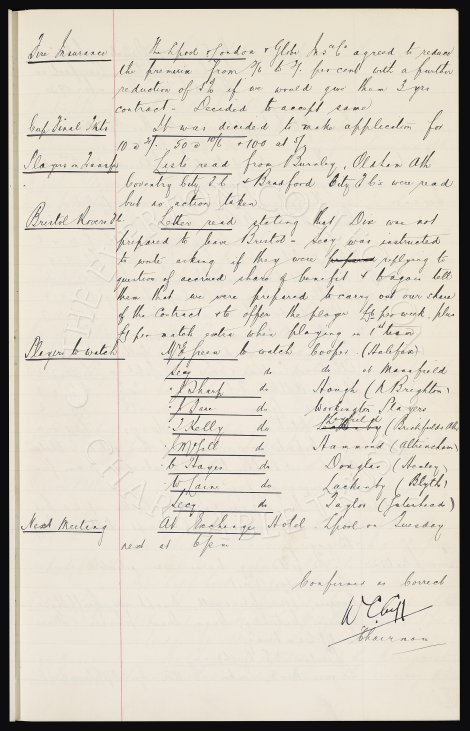 Fire Insurance The Lpool & London & Globe Ins Co agreed to reduce
the premium from 2/6 to 2/- per cent with a further
reduction of if we would give them 3 yrs
contract - Decided to accept same
Cup Final Tkts It was decided to make application for
10 @ 50 @ 10/6 & 100 at 5/
Players on Transfer Lists read from Burnley, Oldham Ath
Coventry City F C. & Bradford City F C's were read
but no action taken
Bristol Rovers Letter read stating that Dix was not
prepared to leave Bristol - Secy was instructed
to write asking if they were replying to
question of accrued share of benefit & to again tell
them that we were prepared to carry out our share
of the contract & to offer the player per week plus
per match extra when playing in 1st team
Players to watch Mr Green to watch Cooper (Halifax)
Secy do do at Mansfield
" J Sharp do Hough (N Brighton)
" do Workington Players
" T Kelly do (Birchfields Ath
" do Hammond (Altrincham)
" C Hayes do Douglas (Henley)
" do Lackenby (Blyth)
Secy do Taylor (Gateshead)
Next Meeting At Exchange Hotel Lpool on Tuesday
next at 6 pm
Confirmed as Correct
W C Cuff
Chairman